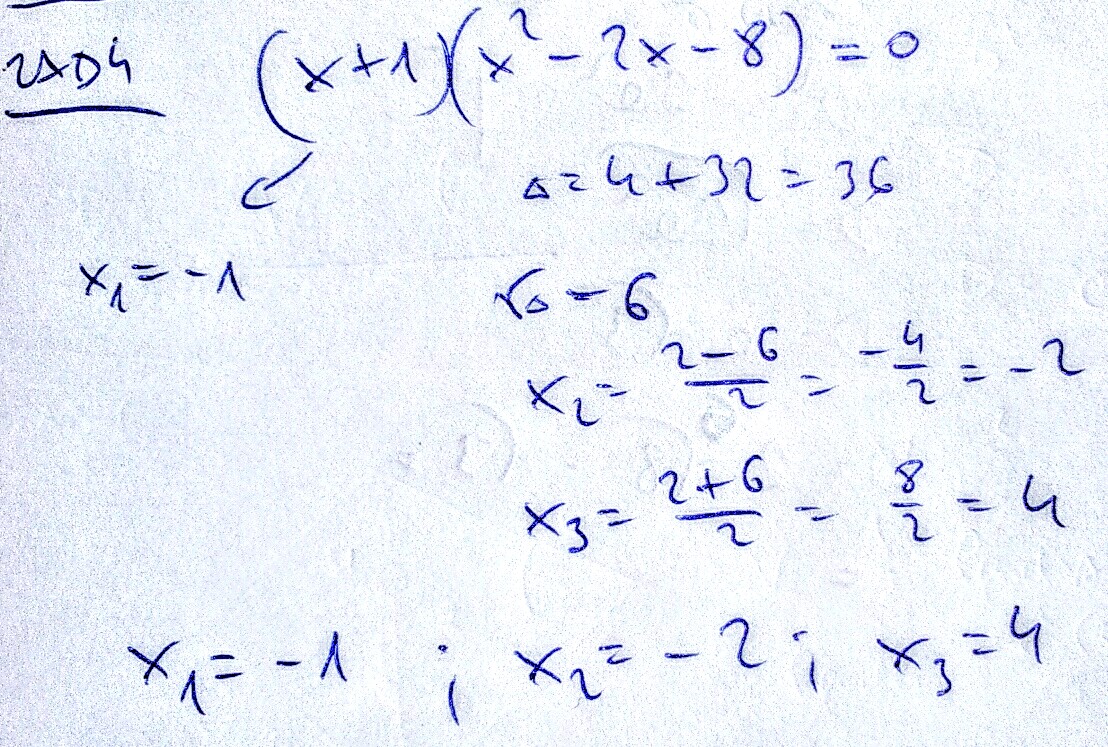 ZAD4 (x+1)(x²-2x-8)=0
Δ=4+32=36
x₁=-1
√Δ=6
x₂=(2-6)/2=-4/2=-2
x₃=(2+6)/2=8/2=4
x₁=-1 ; x₂=-2 ; x₃=4